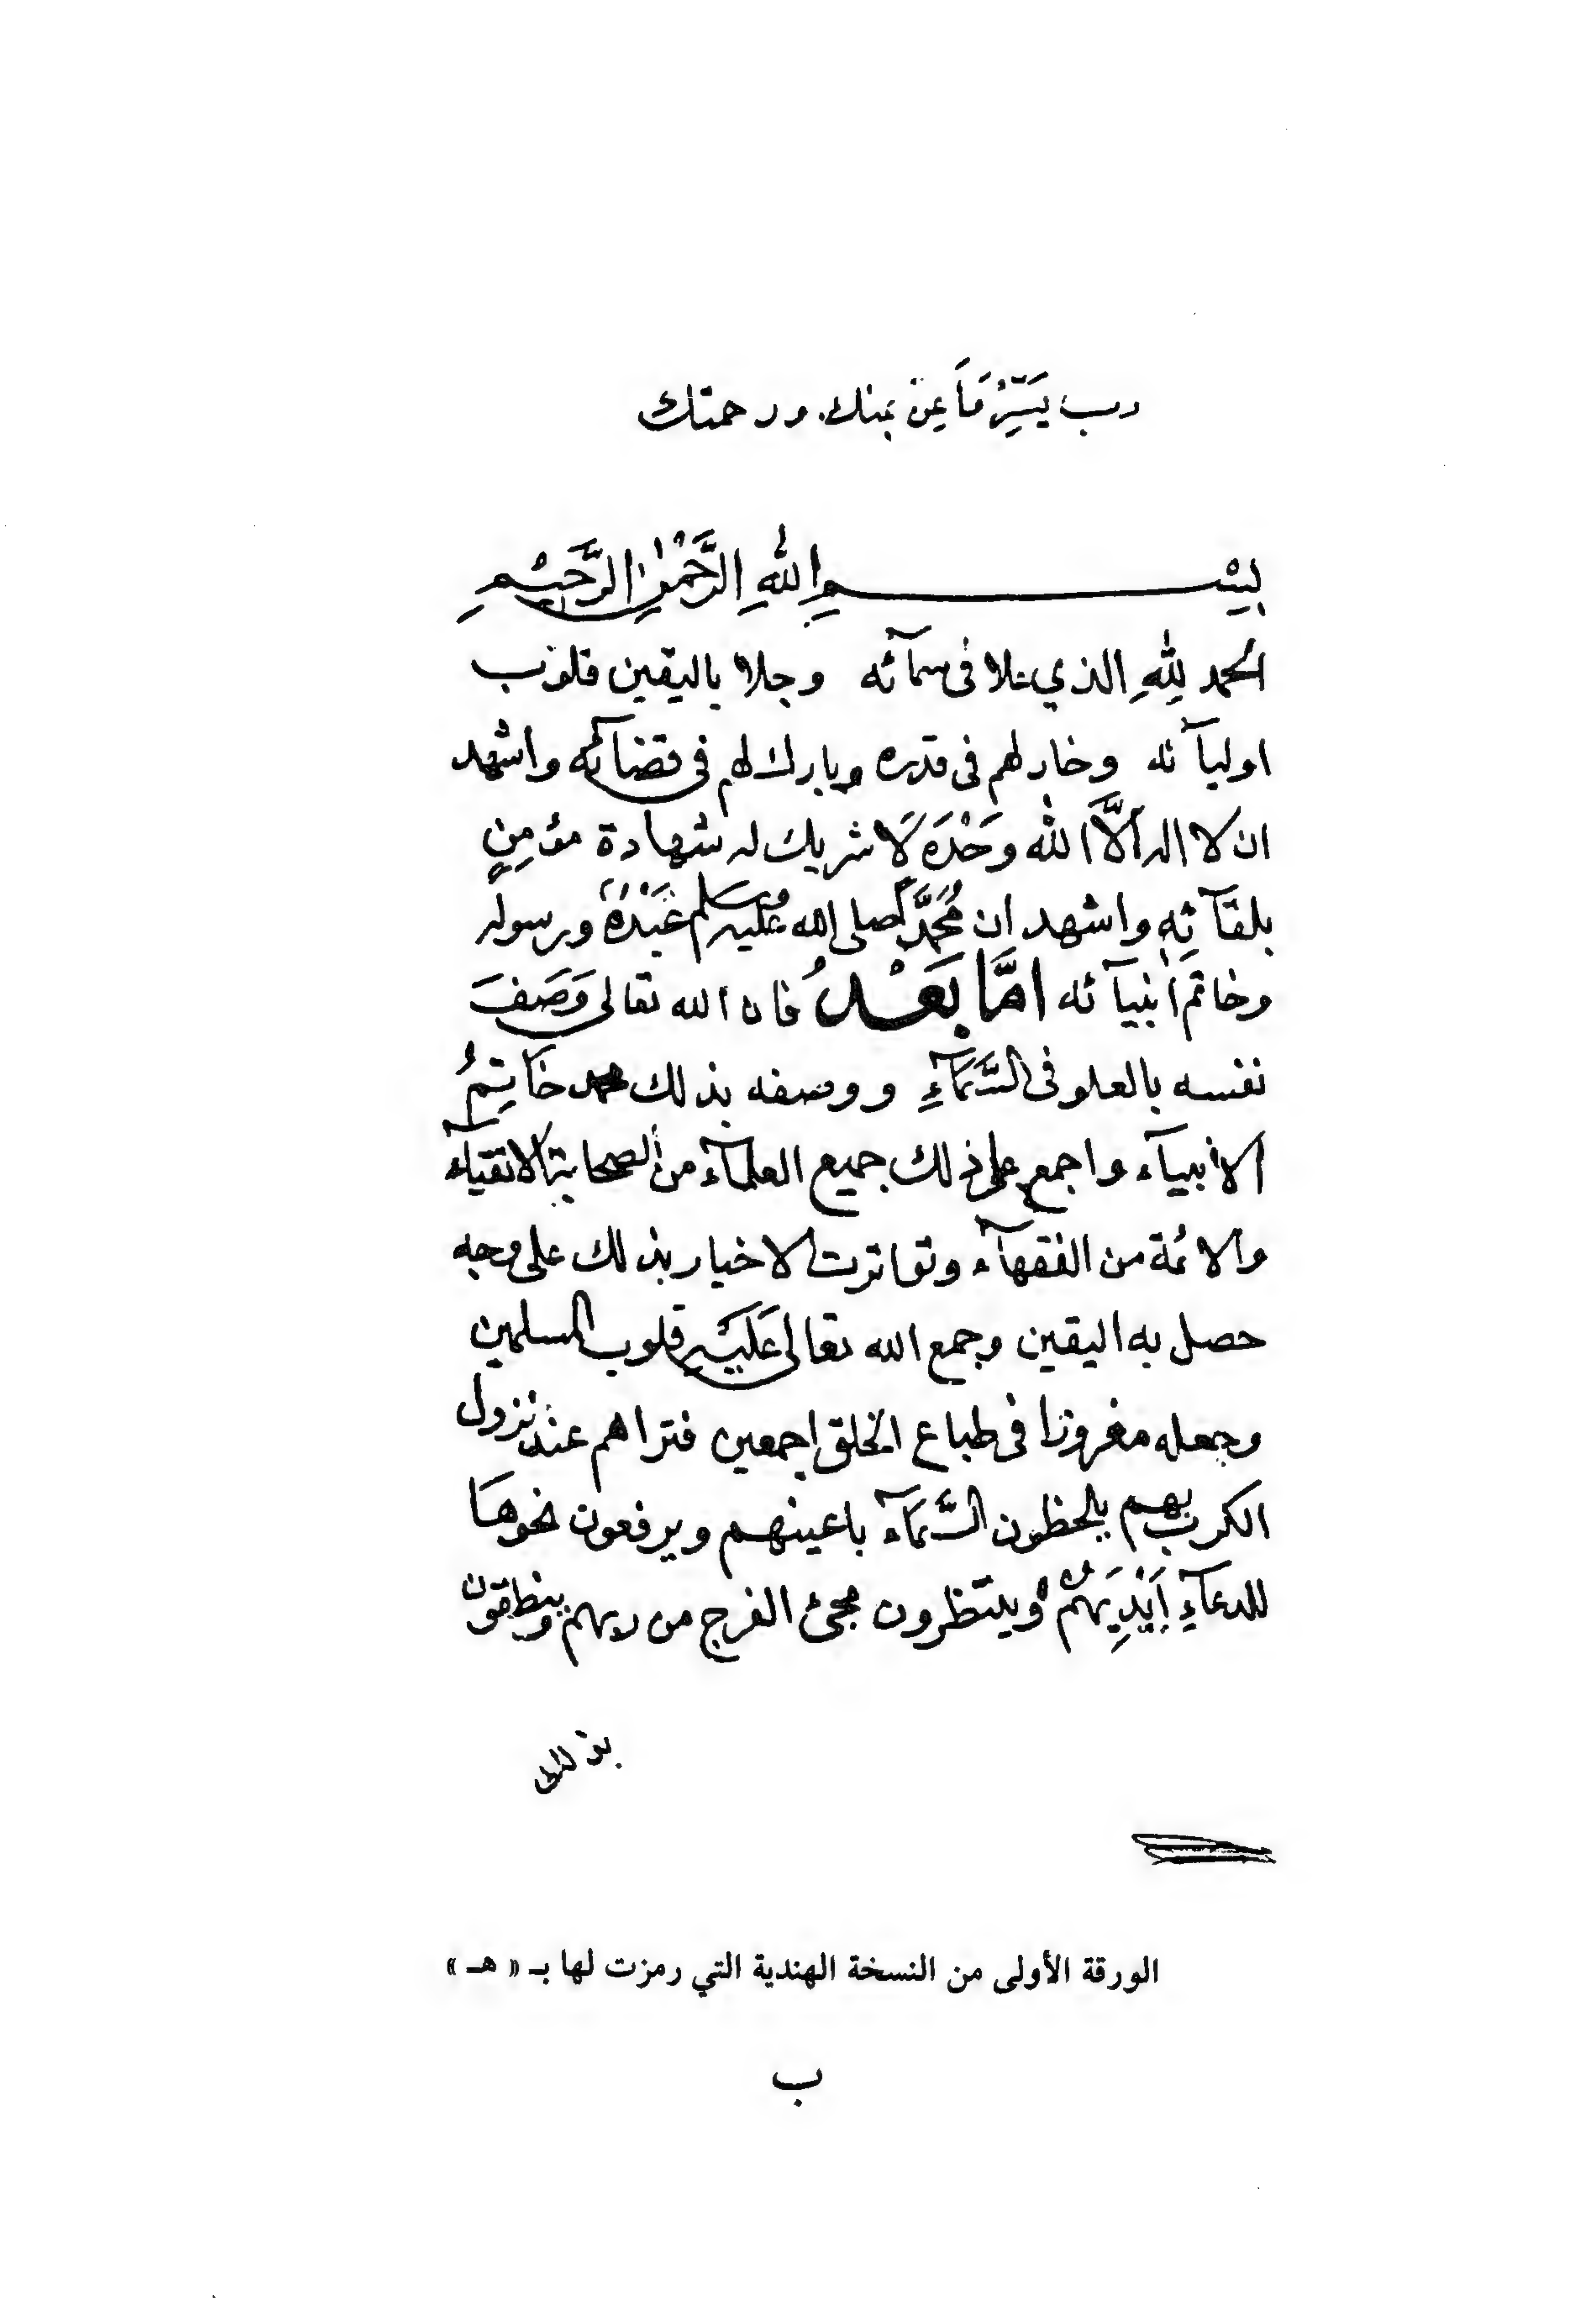 رب يَسِّرْ وَأَعِنْ بمنك ورحمتك
بِسْمِ اللهِ الرَّحْمٰنِ الرَّحِيْمِ
الحمد لِلّٰهِ الذي علا فى سمآئه وجلا باليقين قلوب
اوليآئه وخار لهم فى قدره وبارك لهم فى قضآئه واشهد
ان لا اله اَلَّا الله وَحْدَه لَا شريك له شهادة مؤمِنٍ
بلقآئِهٖ واشهد ان مُحَمَّدًا صلى الله عليه وسلم عَبْدُهٗ ورسوله
وخاتم انبيآئه امَّا بَعْدُ فان الله تعالى وَصَفَ
نفسه بالعلو فى السَّمَآءِ ووصفه بذلك محمد خَاتِمُ
الانبيآء واجمع على ذلك جميع العلمآء من الصحابة الاتقيآء
والائمة من الفقهآء وتواترت الاخبار بذلك على وجه
حصل به اليقين وجمع الله تعالى عَلَيْهِ قلوب المسلمين
وجعله مغروزا فى طباع الخلق اجمعين فتراهم عند نزول
الكرب بهم يلحظون السَّمَآء باعينهم ويرفعون نحوها
للدعآءِ اَيْدِيَهُمْ وينتظرون مجئ الفرج من ربهم وينطقون
بذلك
الورقة الأولى من النسخة الهندية التي رمزت لها بـ « هـ »
ب